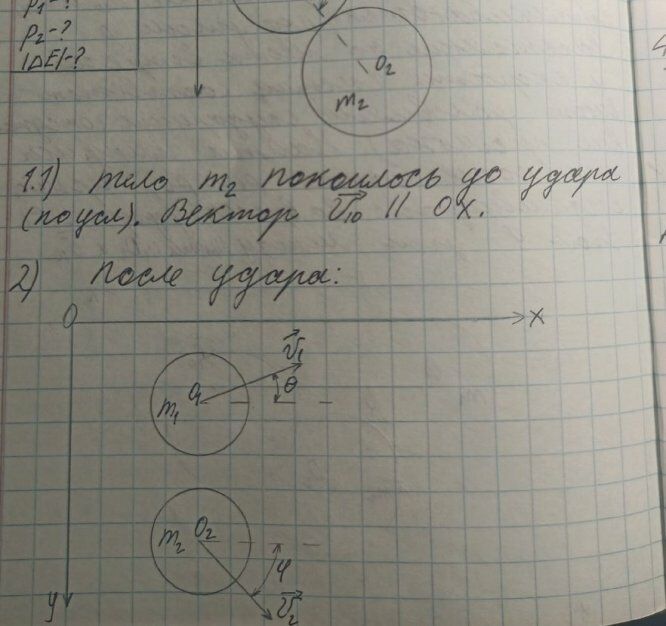 p₁-?
p₂-?
|ΔE|-?
O₂
m₂
1.1) тело m₂ покоилось до удара
(по усл). Вектор v⃗₁₀ || OX.
2) После удара:
O x
v⃗₁
θ
m₁ O₁
m₂ O₂
φ
y v⃗₂